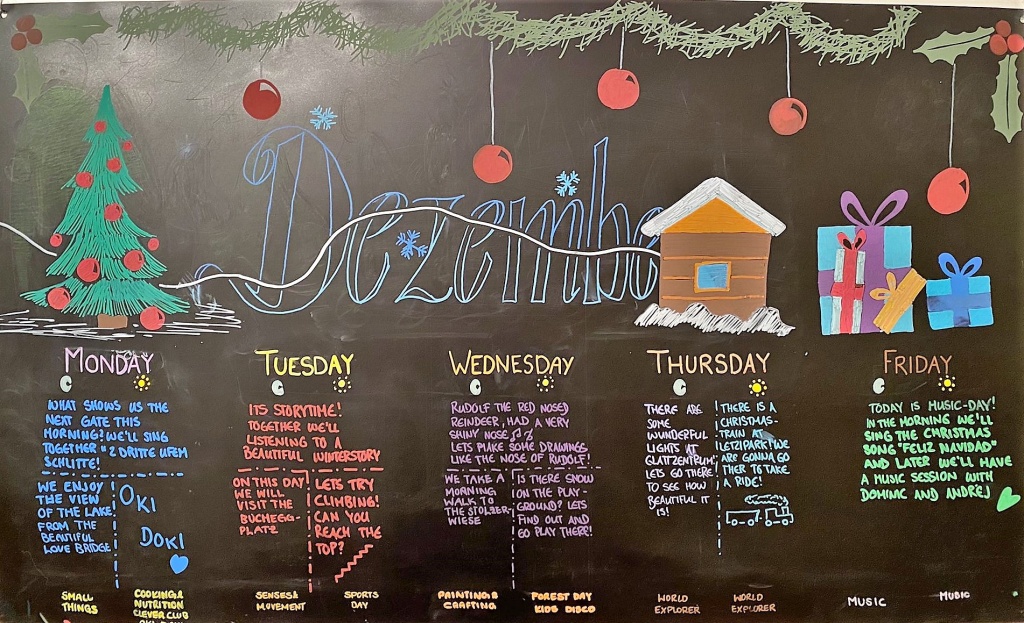 Dezembe
MONDAY
WHAT SHOWS US THE
NEXT GATE THIS
MORNING? WE'LL SING
TOGETHER "2 DRITTE UFEM
SCHLITTE!
WE ENJOY
THE VIEW
OF THE LAKE
FROM THE
BEAUTIFUL
LOVE BRIDGE
OKI
DOKI
SMALL
THINGS
COOKING &
NUTRITION
CLEVER CLUB
TUESDAY
ITS STORYTIME!
TOGETHER WE'LL
LISTENING TO A
BEAUTIFUL WINTERSTORY
ON THIS DAY
WE WILL
VISIT THE
BUCHEGG-
PLATZ
LETS TRY
CLIMBING!
CAN YOU
REACH THE
TOP?
SENSES &
MOVEMENT
SPORTS
DAY
WEDNESDAY
RUDOLF THE RED NOSED
REINDEER, HAD A VERY
SHINY NOSE
LETS MAKE SOME DRAWINGS
LIKE THE NOSE OF RUDOLF!
WE TAKE A
MORNING
WALK TO
THE STOLZER-
WIESE
IS THERE SNOW
ON THE PLAY-
GROUND? LETS
FIND OUT AND
GO PLAY THERE!
PAINTING &
CRAFTING
FOREST DAY
KIDS DISCO
THURSDAY
THERE ARE
SOME
WUNDERFUL
LIGHTS AT
GLATTZENTRUM
LETS GO THERE
TO SEE HOW
BEAUTIFUL IT
IS!
THERE IS A
CHRISTMAS-
TRAIN AT
LETZIPARK WE
ARE GONNA GO
THER TO TAKE
A RIDE!
WORLD
EXPLORER
WORLD
EXPLORER
FRIDAY
TODAY IS MUSIC-DAY!
IN THE MORNING WE'LL
SING THE CHRISTMAS
SONG "FELIZ NAVIDAD"
AND LATER WE'LL HAVE
A MUSIC SESSION WITH
DOMINIC AND ANDREJ
MUSIC
MUSIC